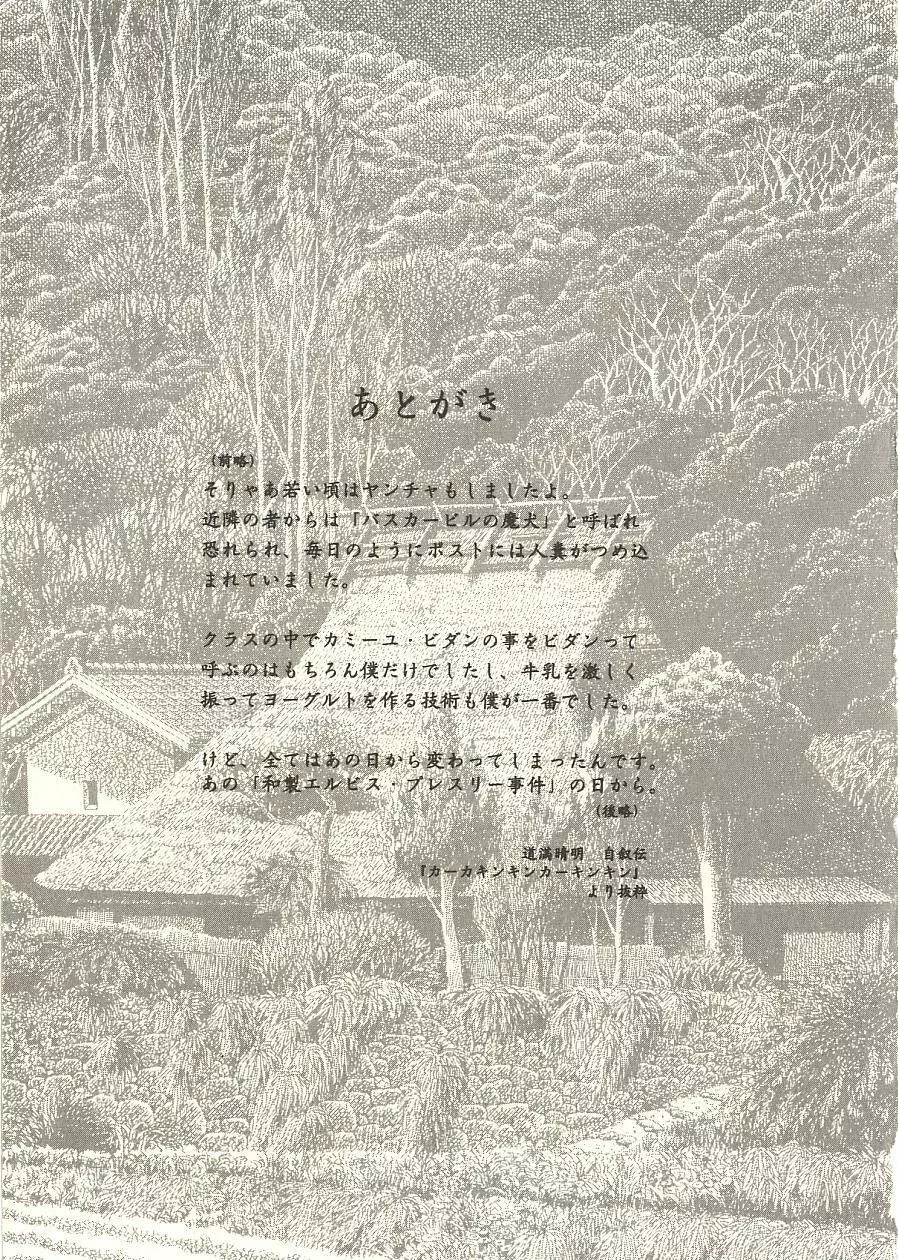 あとがき
(前略)
そりゃあ若い頃はヤンチャもしましたよ。
近隣の者からは「バスカービルの魔犬」と呼ばれ
恐れられ、毎日のようにポストには人糞がつめ込
まれていました。
クラスの中でカミーユ・ビダンの事をビダンって
呼ぶのはもちろん僕だけでしたし、牛乳を激しく
振ってヨーグルトを作る技術も僕が一番でした。
けど、全てはあの日から変わってしまったんです。
あの「和製エルビス・プレスリー事件」の日から。
(後略)
道満晴明　自叙伝
『カーカキンキンカーキンキン』
より抜粋